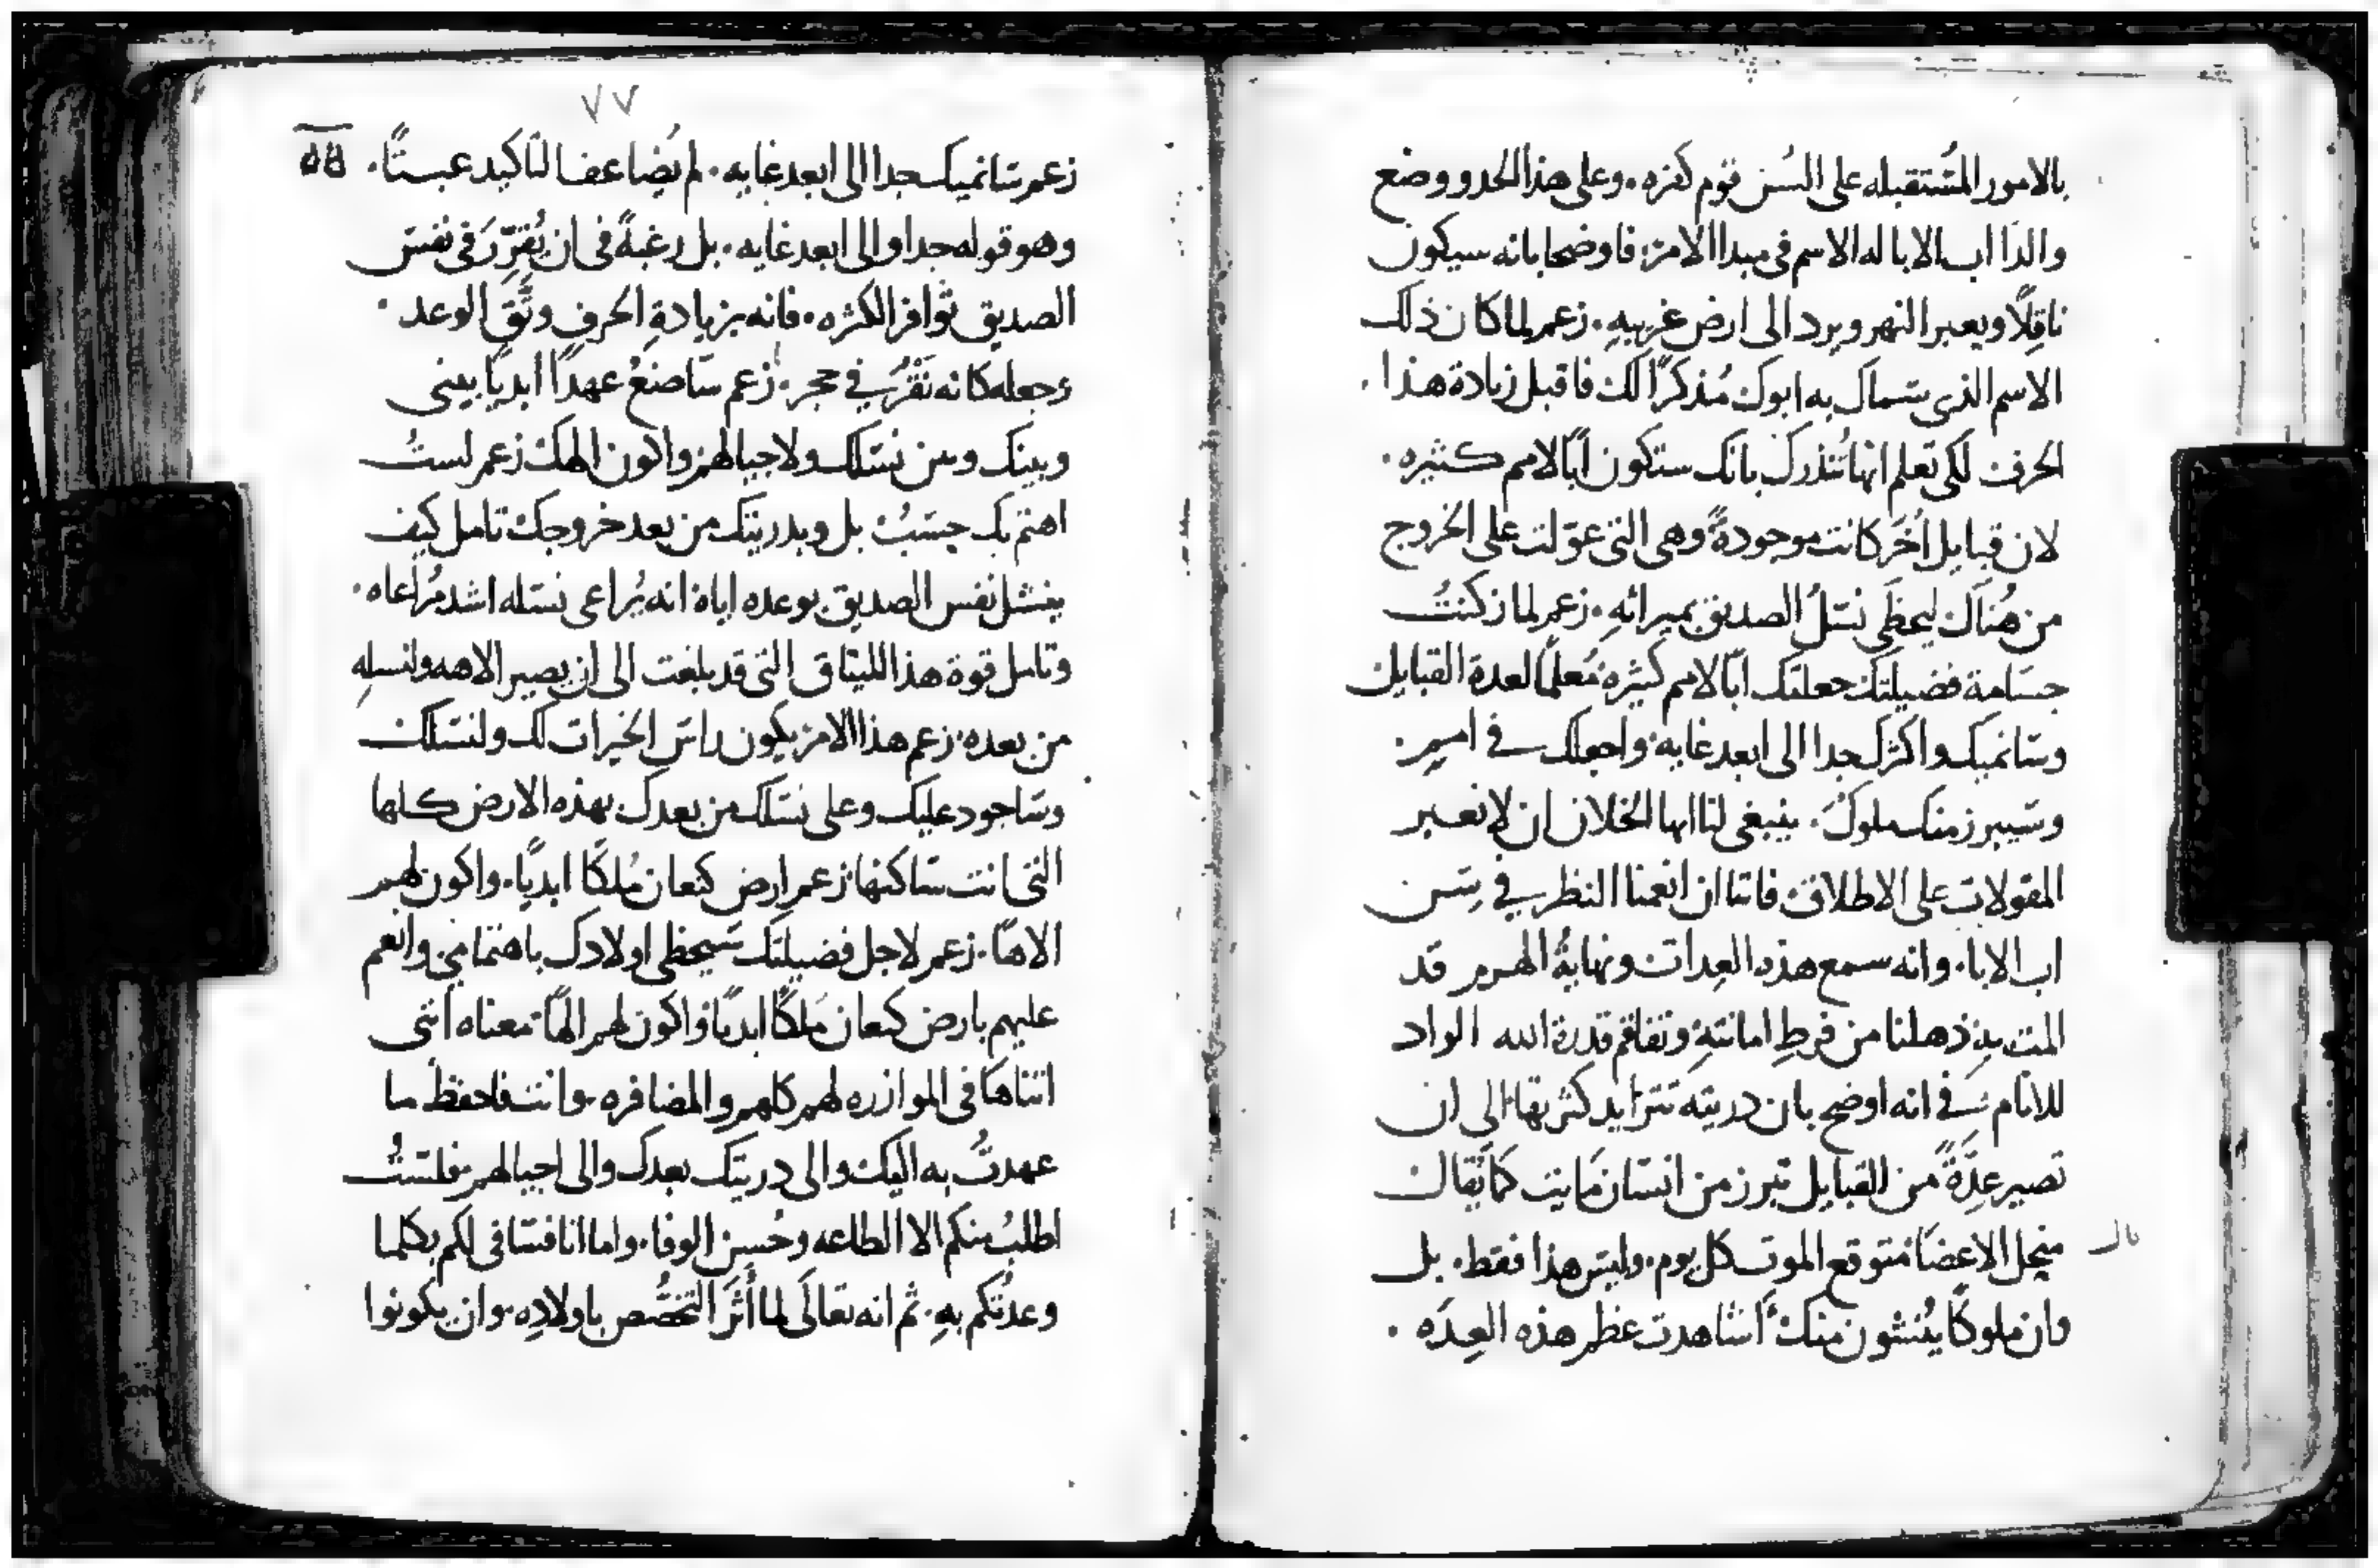 بالامور المُستقبله على السُن قوم كفره. وعلى هذا الحدو وضع
والدا اب الابا له الاسم فى مبدا الامر. فاوضحا بانه سيكون
ناقِلًا ويعبر النهر ويرد الى ارض غريبهِ. زعم لما كان ذلك
الاسم الذى سماك به ابوك مُذكرًا لك فاقبل زيادة هذا.
الحرف لكى تعلم انها تُنذرك بانك ستكون ابًا لامم كثيره.
لان قبايل اُخَر كانت موجودةً وهى التى عوّلت على الخروج
من هُناك ليحظَى نسلُ الصديق بميراثهِ. زعم لما زكنتُ
جسَامة فضيلتك جعلتك ابًا لامم كثيره مُعلمًا لعدة القبايل
وسَانميك واكثرك جدا الى ابعد غايه. واجعلك فى اميمٍ.
وسَيبرز منك ملوكٌ. ينبغى لنا ايها الخلان ان لا نعبر
المقولات على الاطلاق فاننا ان انعمنا النظر فى سِن
اب الابا. وانه سمع هذه العِدات ونهايةُ الهرم قد
المت به ذهلنا من فرطِ امانتهِ وتفاقم قدرة الله الواد
للانام فى انه اوضح بان دريته تتزايد كثرتها الى ان
تصير عِدَّةً من القبايل تبرز من انسَان مَايت كما يُقال
منحل الاعضَا متوقع الموت كل يوم. وليس هذا فقط. بل
وان ملوكًا يُنشون منك اشاهدت عظم هذه العِدَه.
٧٧
زعم سَانميك جدا الى ابعد غايه. لم يُضاعف التاكيد عبثًا.
وهو قوله جدا والى ابعد غايه. بل رغبةً فى ان يُقرِّرَ فى نفس
الصديق توافر الكثره. فانه بزيادةِ الحرفِ وثَّق الوعد.
وجعله كانه نَقْرٌ فى حجر. زعم سَاصنعُ عهدًا ابديًا بينى
وبينك وبين نسلك ولاجيالهم واكون الهك زعم لستُ
اهتم بك حسَبُ بل وبدريتك من بعد خروجك تامل كيف
ينشل نفس الصديق بوعده اياهُ انه يُراعى نسله اشد مُراعاه.
وتامل قوة هذا الميثاق التى قد بلغت الى ان يصير الاهه ولنسلهِ
من بعده. زعم هذا الامر يكون راس الخيرات لك ولنسلك
وسَاجود عليك وعلى نسلك من بعدك بهذه الارض كلها
التى انت سَاكنها زعم ارض كنعان مُلكًا ابديًا. واكون لهم
الاهًا. زعم لاجل فضيلتك سَيحظى اولادك باهتمامى وانعم
عليهم بارض كنعان مُلكًا ابديًا واكون لهم الهًا معناه اننى
اتناها فى الموازره لهم كلهم والمضافره وانت فاحفظ ما
عهدتُ به اليك والى دريتك بعدك والى اجيالهم فلستُ
اطلبُ منكم الا الطاعه وحُسن الوفا. واما انا فسَافى لكم بكلما
وعدتكم بهِ. ثم انه تعالَى لما أَثَرَ التخصُّص باولادِه وان يكونوا